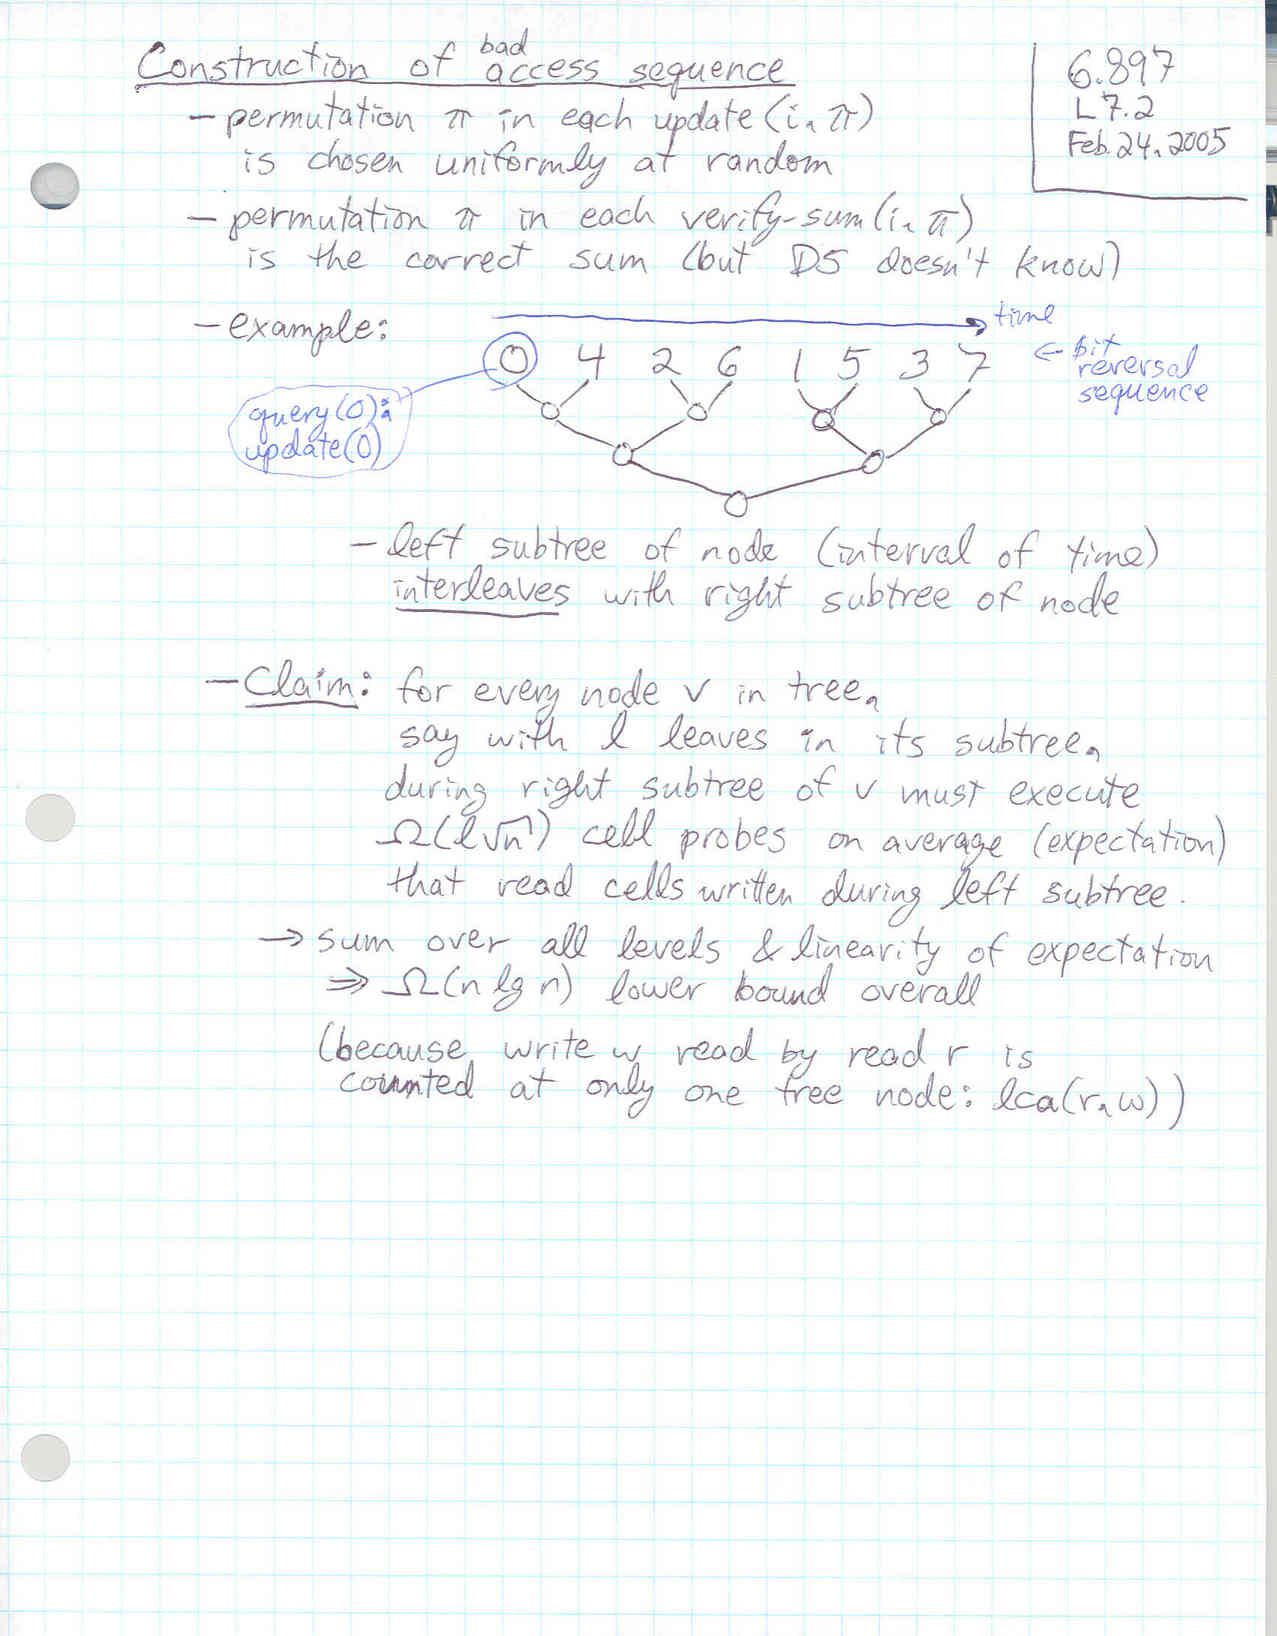 Construction of bad access sequence
6.897
L7.2
Feb. 24, 2005
- permutation π in each update(i, π)
is chosen uniformly at random
- permutation π in each verify-sum(i, π)
is the correct sum (but DS doesn't know)
- example:
time
0 4 2 6 1 5 3 7
← bit
reversal
sequence
query(0);
update(0)
- left subtree of node (interval of time)
interleaves with right subtree of node
- Claim: for every node v in tree,
say with l leaves in its subtree,
during right subtree of v must execute
Ω(l√n) cell probes on average (expectation)
that read cells written during left subtree.
→ sum over all levels & linearity of expectation
⇒ Ω(n lg n) lower bound overall
(because write w read by read r is
counted at only one tree node: lca(r, w))